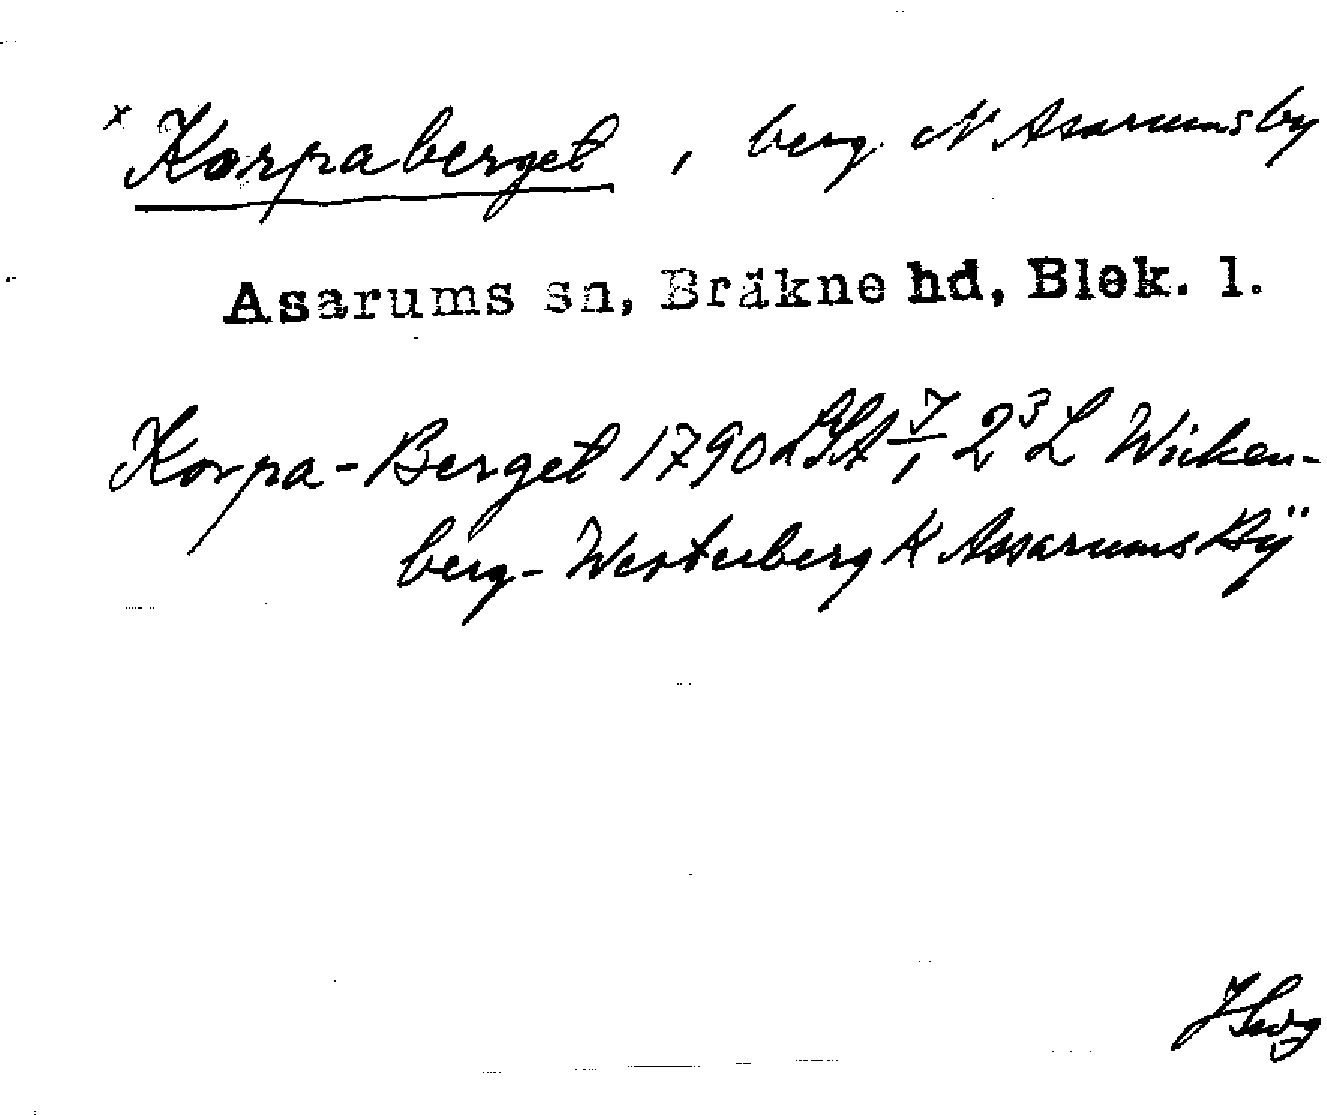 x Korpaberget, berg. N Asarums by
Asarums sn, Bräkne hd, Blek. l.
Korpa-Berget 1790 LSA 7/1, 2³ L Wicken-
berg- Westerberg K Assarums Bÿ